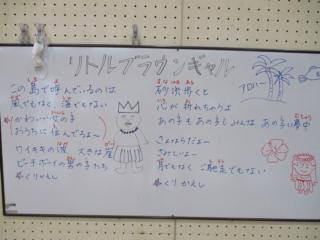 リトルブラウンギャル
この島で呼んでいるのは
風でもなく、海でもない
かわいいせの子
おうちに住んでるよ〜
ワイキキの波 大きな崖
ビーチボーイの男の子たち
※くりかえし
砂浜歩くと
心が折れちゃうよ
あの子もあの子もみんな あの子に夢中
さよならだよー
さみしいよー
魚でもなく ご馳走でもない
※くりかえし
アロハ〜